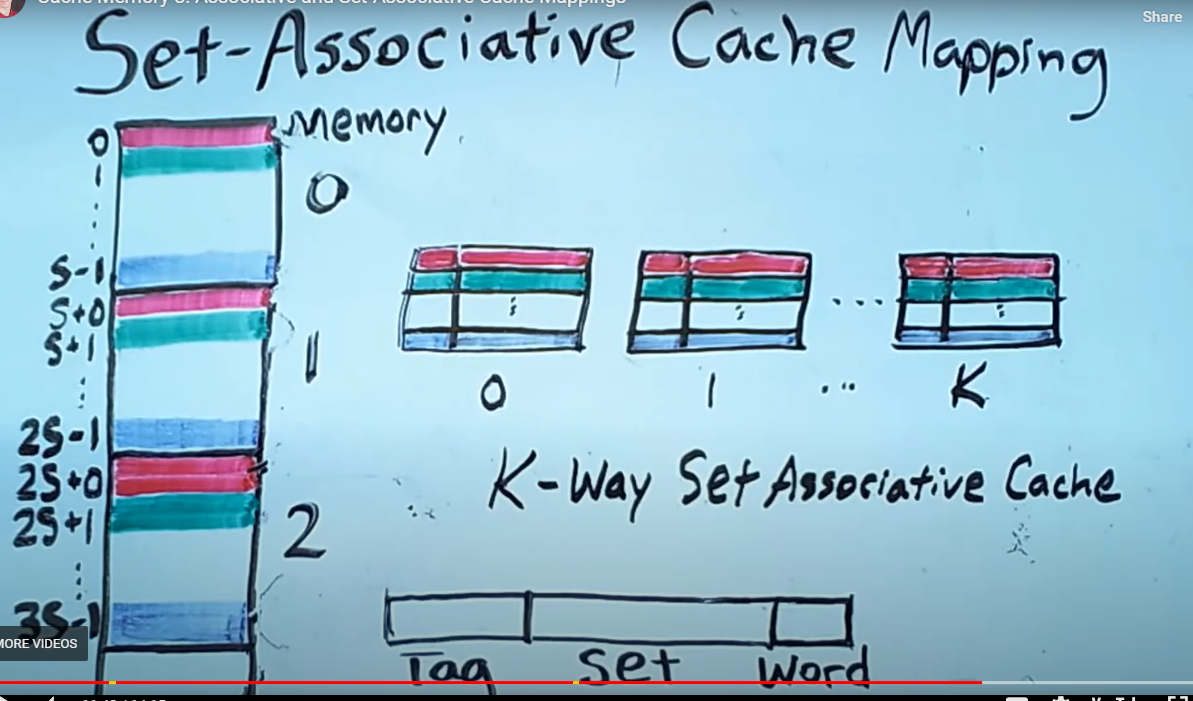 Cache Memory 3: Associative and Set-Associative Cache Mappings
Share
Set-Associative Cache Mapping
Memory
0
1
0
S-1
S+0
S+1
1
2S-1
2S+0
2S+1
2
3S-1
0 1 ... K
K-Way Set Associative Cache
Tag Set Word
MORE VIDEOS